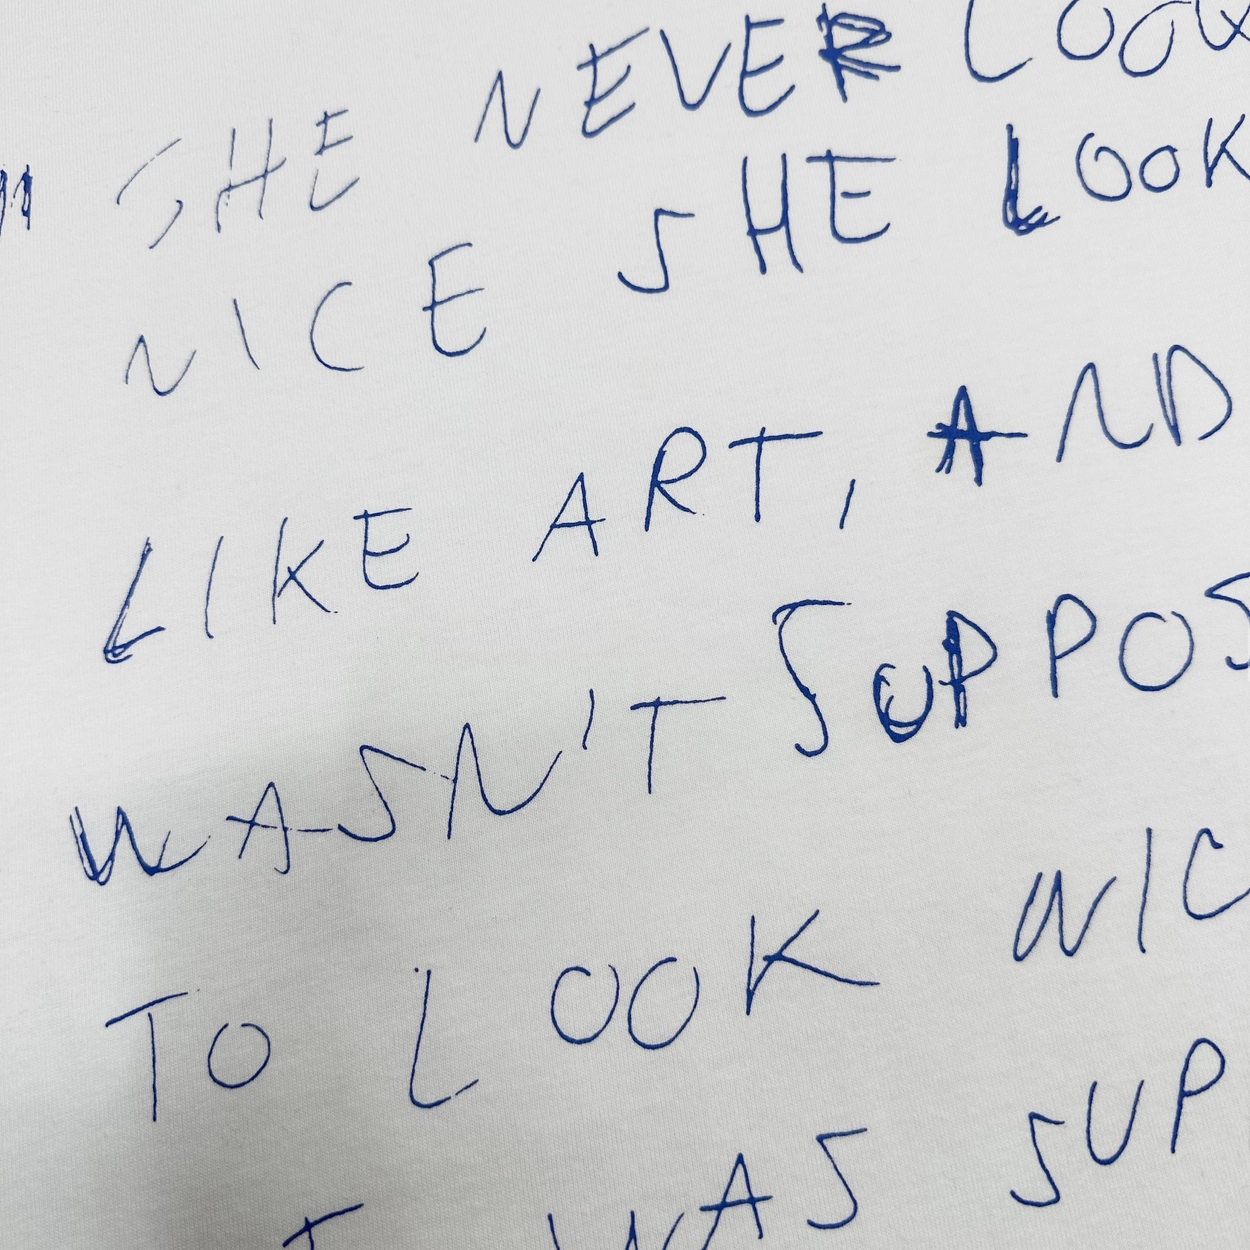 " SHE NEVER LOOK
NICE SHE LOOK
LIKE ART, AND
WASN'T SUPPOS
TO LOOK NIC
WAS SUP